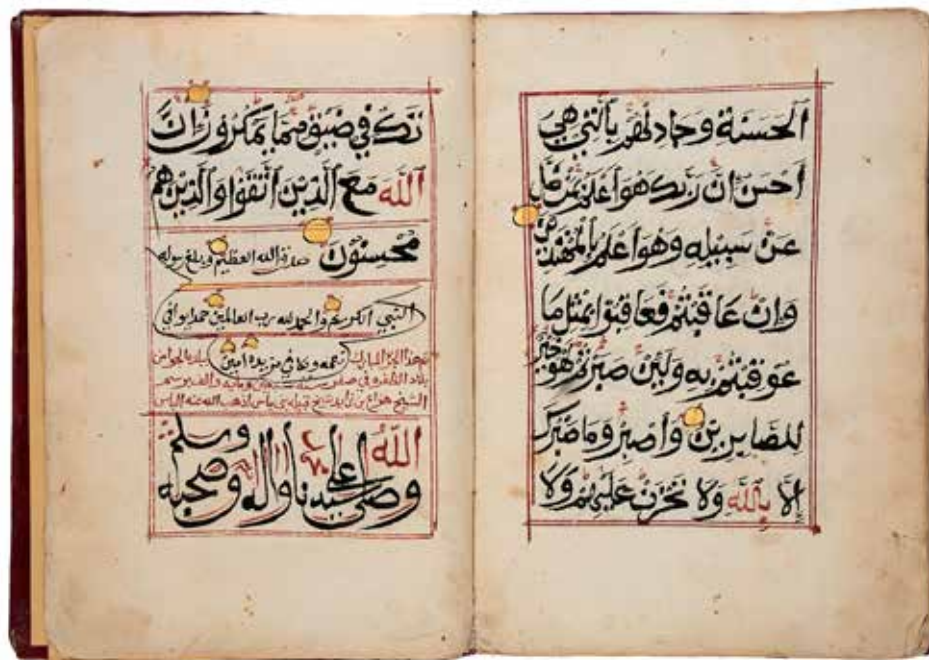 الحسنة وجادلهم بالتي هي
احسن ان ربك هو اعلم بمن ضل
عن سبيله وهو اعلم بالمهتدين
وان عاقبتم فعاقبوا بمثل ما
عوقبتم به ولئن صبرتم لهو خير
للصابرين واصبر وما صبرك
الا بالله ولا تحزن عليهم ولا
تك في ضيق مما يمكرون ان
الله مع الذين اتقوا والذين هم
محسنون صدق الله العظيم وبلغ رسوله
النبي الكريم والحمد لله رب العالمين حمدا يوافي
نعمه ويكافي مزيده امين
هذا الجزء المبارك
بلاد الظفره في صفر سنة
الشيخ قبيله بني ياس اذهب الله عنه الباس
وصلى الله على سيدنا واله وصحبه وسلم